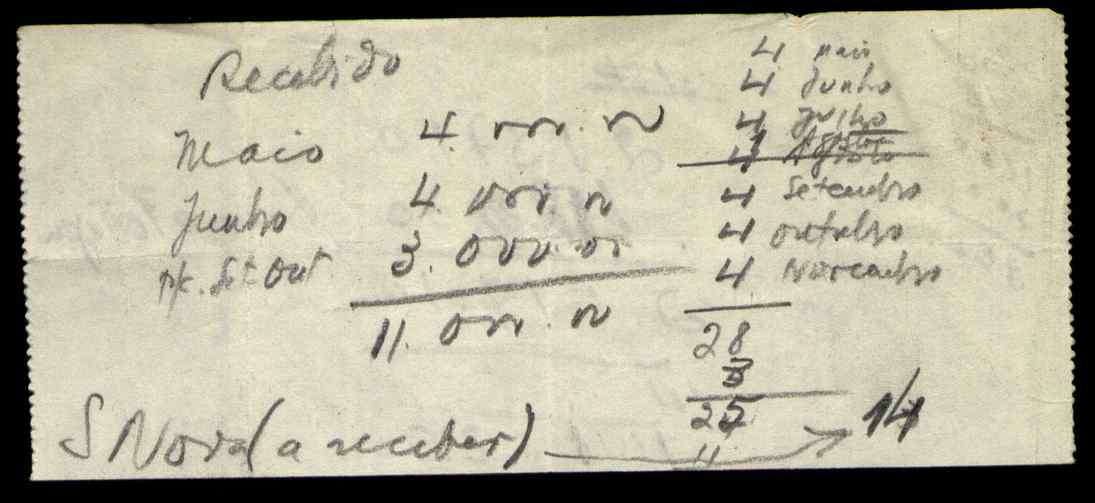 Recebido
Maio 4.000.00
Junho 4.000.00
p/c. Set-Out 3.000.00
11.000.00
4 maio
4 Junho
4 Julho
4 Agosto
4 Setembro
4 Outubro
4 Novembro
28
3
25
11
S Nova (a receber) 14